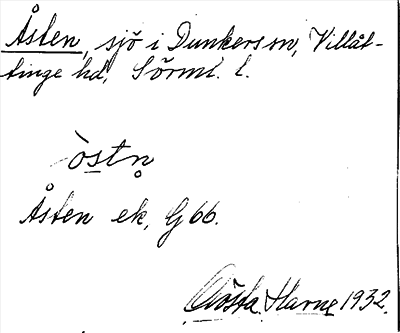 Åsten, sjö i Dunkers sn, Villåt-
tinge hd, Sörml. l.
òstn̥
Åsten ek, G 66.
Gösta Harne 1932.